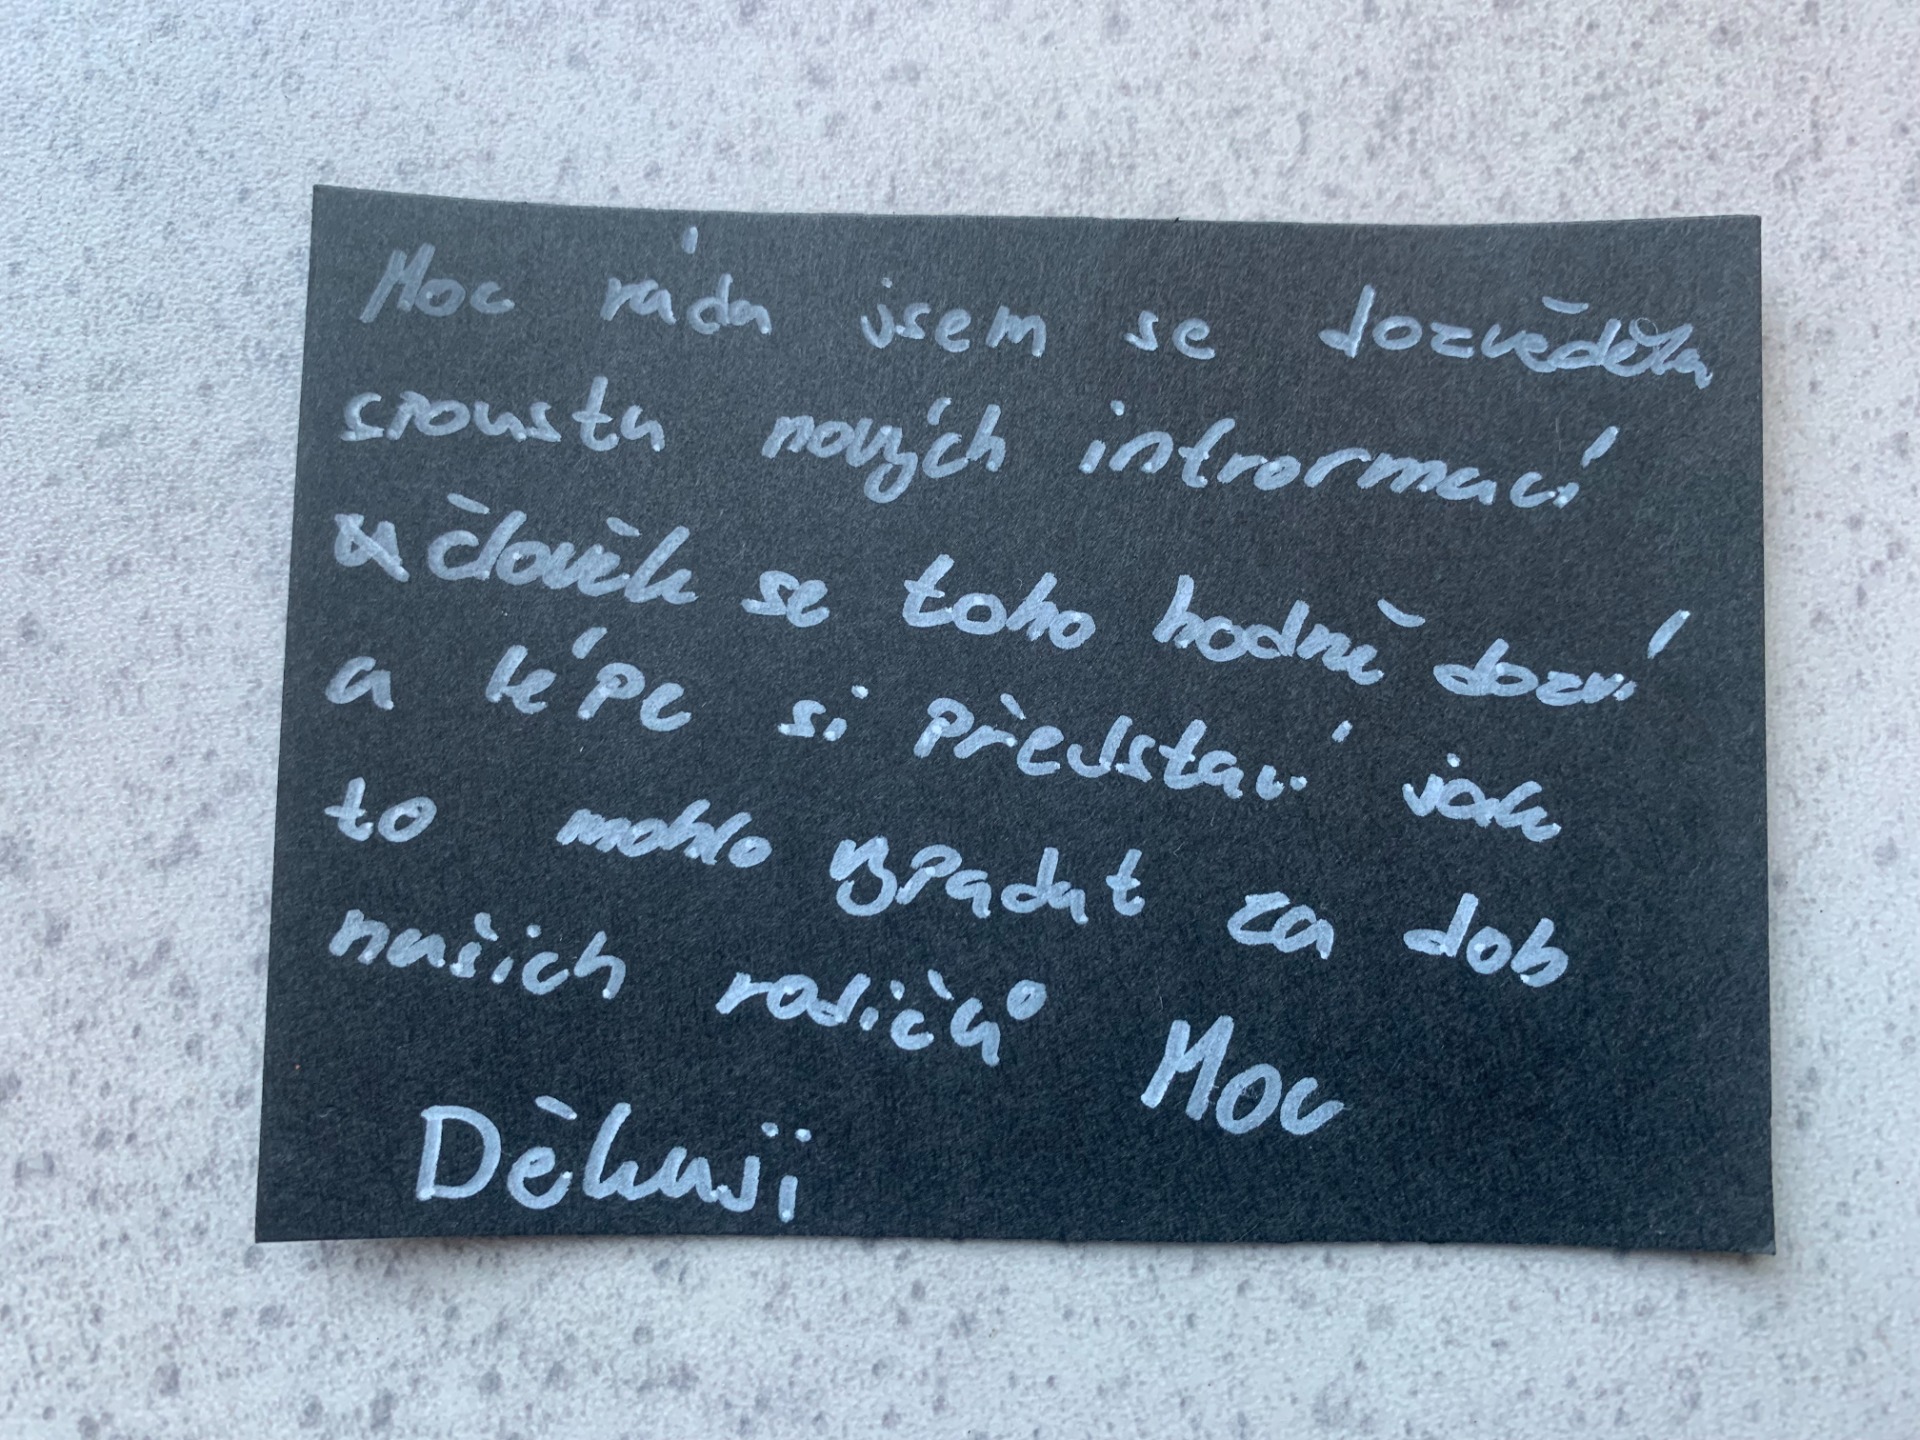 Moc ráda jsem se dozvěděla
spousta nových intrormací
člověk se toho hodně dozví
a lépe si představí jak
to mohlo vypadat za dob
našich rodičů Moc
Děkuji